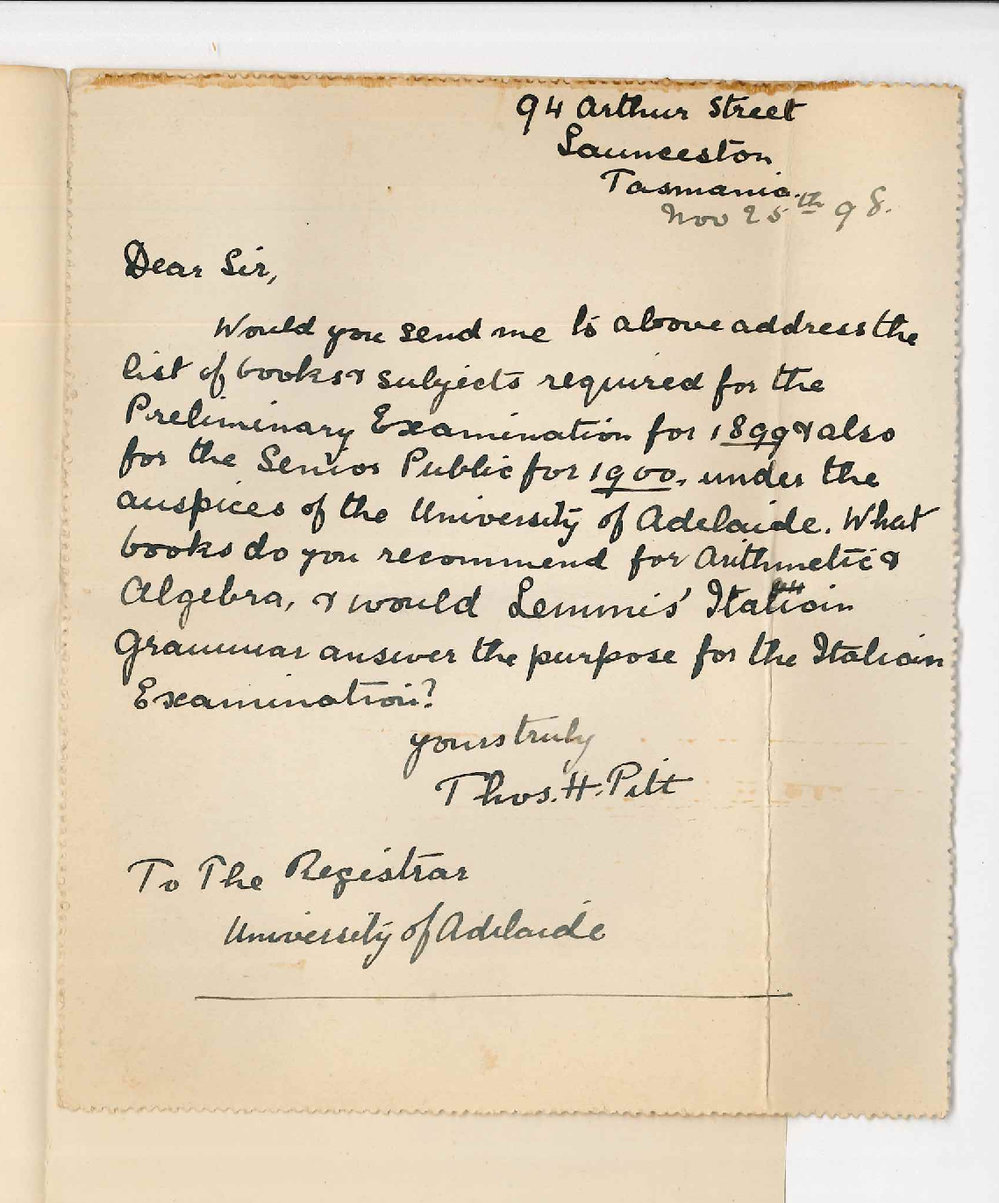 94 Arthur Street
Launceston
Tasmania.
Nov 25th 98.
Dear Sir,
Would you send me to above address the
list of books & subjects required for the
Preliminary Examination for 1899 & also
for the Senior Public for 1900, under the
auspices of the University of Adelaide. What
books do you recommend for Arithmetic &
Algebra, & would Lemmis' Italian
Grammar answer the purpose for the Italian
Examination?
yours truly
Thos. H. Pitt
To The Registrar
University of Adelaide